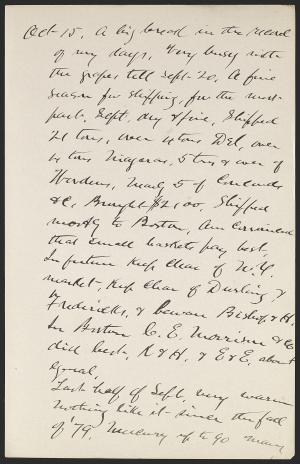 Oct 15. A big break in the record
of my days. Very busy with
the grapes till Sept. 20. A fine
season for shipping, for the most
part. Sept. dry & fine. Shipped
21 tons, over 4 tons Del., over
4 tons Niagaras, 5 tons & over of
Wordens, nearly 5 of Concords
&c. Brought $2100. Shipped
mostly to Boston. Am convinced
that small baskets pay best.
In future keep clear of N.Y.
market, keep clear of Durling &
Fredericks, & beware Bishop & H.
In Boston C. E. Morrison & Co
did best, R & H. & E & E. about
equal.
Last half of Sept. very warm
nothing like it since the fall
of '79. Mercury up to 90 many